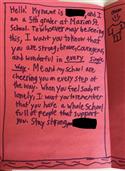 Hello! My name is
and I
am a 5th grader at Marion St.
School. To whomever may be seeing
this, I want you to know that
you are strong, brave, courageous,
and wonderful in every single
way. Me and my school are
cheering you on every step of
the way. When you feel sad or
lonely, I want you to remember
that you have a whole school
full of people that support
you. Stay strong,